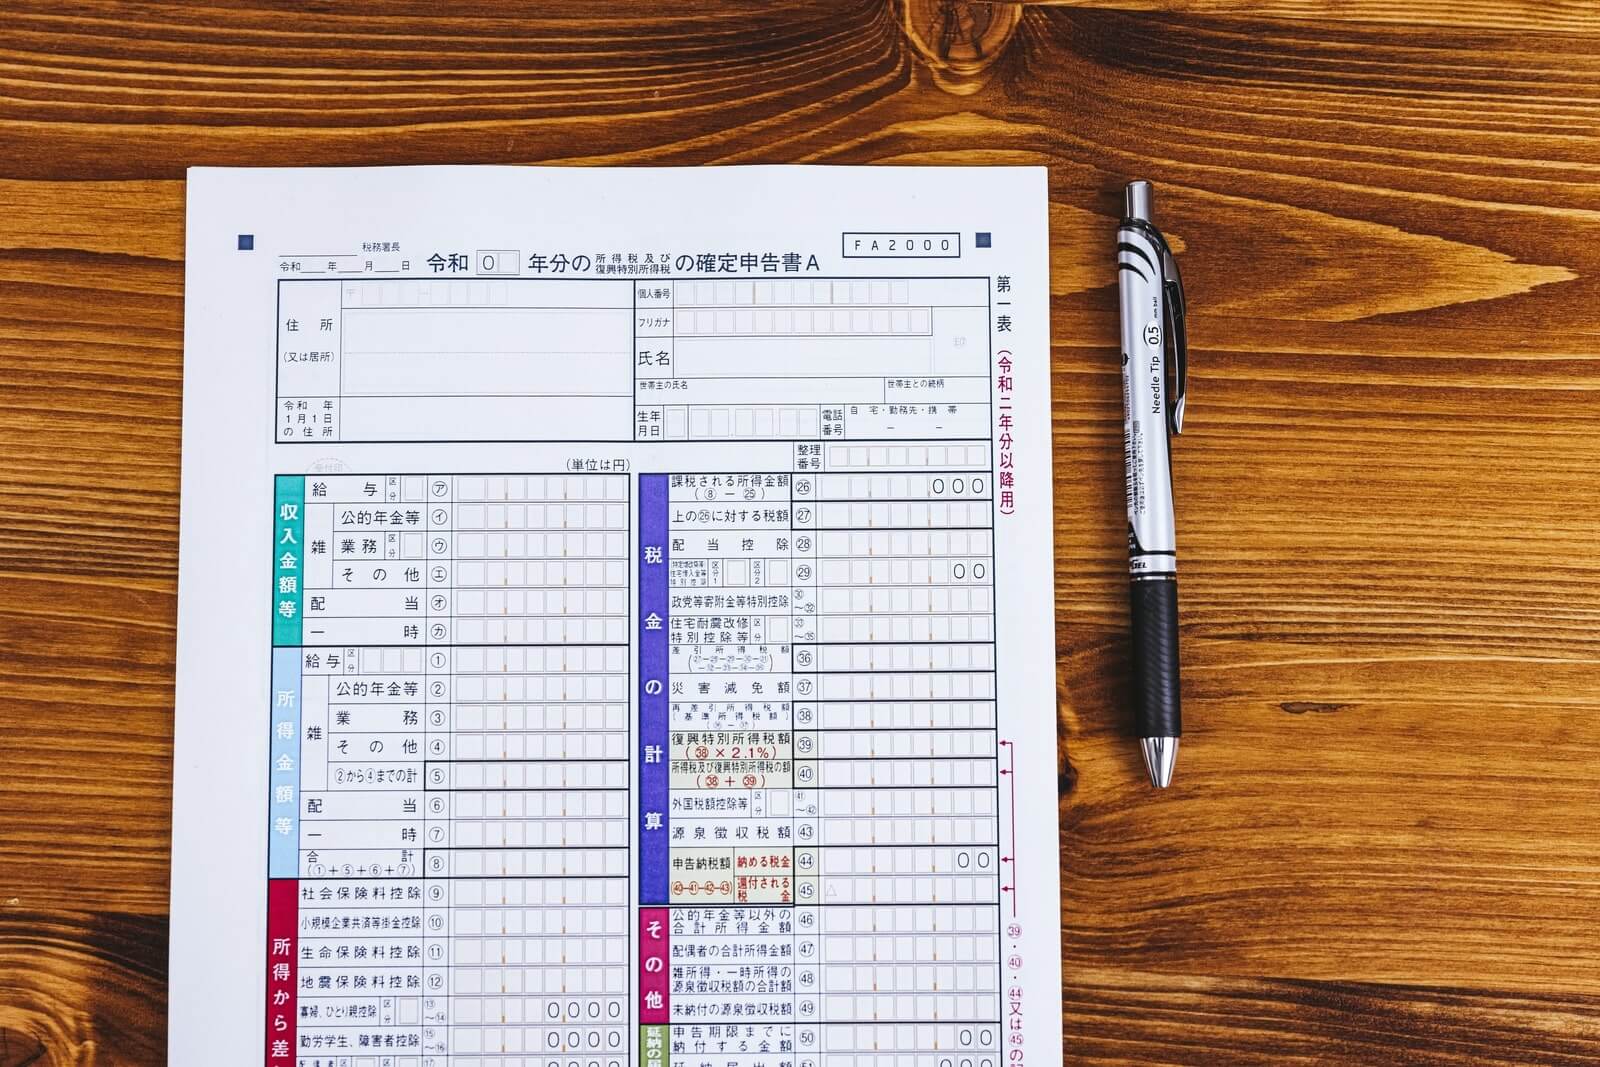 税務署長
令和 年 月 日
令和 0 年分の 所得税及び 復興特別所得税 の確定申告書A
FA2000
住所
(又は居所)
令和 年
1月1日
の住所
個人番号
フリガナ
氏名
印
世帯主の氏名
世帯主との続柄
生年
月日
電話
番号
自宅・勤務先・携帯
第一表
(令和二年分以降用)
受付印
(単位は円)
整理
番号
収入金額等
給与 区分 ㋐
雑
公的年金等 ㋑
業務 区分 ㋒
その他 ㋓
配当 ㋔
一時 ㋕
所得金額等
給与 区分 ①
雑
公的年金等 ②
業務 ③
その他 ④
②から④までの計 ⑤
配当 ⑥
一時 ⑦
合計
(①+⑤+⑥+⑦) ⑧
所得から差
社会保険料控除 ⑨
小規模企業共済等掛金控除 ⑩
生命保険料控除 ⑪
地震保険料控除 ⑫
寡婦、ひとり親控除 区分 ⑬~⑭ 0000
勤労学生、障害者控除 ⑮~⑯ 0000
税金の計算
課税される所得金額
(⑧-㉕) ㉖ 000
上の㉖に対する税額 ㉗
配当控除 ㉘
区分1 区分2 ㉙ 00
政党等寄附金等特別控除 ㉚~㉜
住宅耐震改修
特別控除等 区分 ㉝~㉟
差引所得税額
㊱
災害減免額 ㊲
再差引所得税額
(基準所得税額)
㊳
復興特別所得税額
(㊳×2.1%) ㊴
所得税及び復興特別所得税の額
(㊳+㊴) ㊵
外国税額控除等 区分 ㊶~㊷
源泉徴収税額 ㊸
申告納税額
(㊵-㊶-㊷-㊸)
納める税金 ㊹ 00
還付される税金 ㊺ △
その他
公的年金等以外の
合計所得金額 ㊻
配偶者の合計所得金額 ㊼
雑所得・一時所得の
源泉徴収税額の合計額 ㊽
未納付の源泉徴収税額 ㊾
申告期限までに
納付する金額 ㊿ 00
延納届出額 51 000
㊴・㊵・㊹又は㊺の
0.5
mm ball
Needle Tip